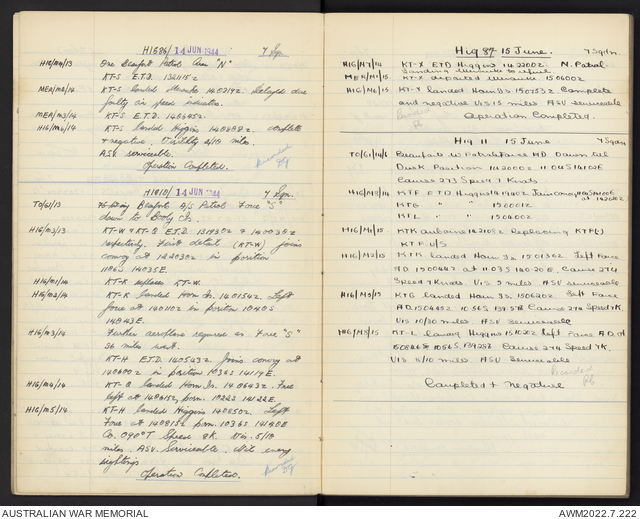 HIG86/ 14 JUN 1944 7 Sqn.
HIG/M/13 One Beaufort Patrol Area "N"
KT-S E.T.D. 132115z
MER/M2/14 KT-S landed Merauke 140219z. Delayed due
faulty air speed indicator.
MER/M3/14 KT-S E.T.D.
HIG/M6/14 KT-S landed Higgins complete
& negative. Visibility 8/10 miles.
ASV serviceable.
Operation Completed.
HIG10/ 14 JUN 1944 7 Sqn.
TO/G1/13 Beaufort A/S Patrol Force "S"
down to Booby Is.
HIG/M3/13 KT-W & KT-Q E.T.D. 131930z & 140030z
respectively. First detail (KT-W) joins
convoy at 122030z in position
1106S 14035E.
HIG/M1/14 KT-K replaces KT-W.
HIG/M2/14 KT-K landed Horn Is. 140154z. Left
force at 140110z in position 1048S
14243E.
HIG/M3/14 Further aeroplane required as Force "S"
36 miles west.
KT-H E.T.D. 140543z. Joins convoy at
140600z in position 1036S 14119E.
HIG/M4/14 KT-Q landed Horn Is. 140643z. Force
left at 140615z, posn. 1022S 14122E.
HIG/M5/14 KT-H landed Higgins 140850z. Left
Force at 140815z posn. 1036S 14140E
Co. 090°T Speed 8K. Vis. 5/10
miles. ASV. Serviceable. Nil enemy
sightings.
Operation Completed.
Hig 87 - 15 June. 7 Sqdrn.
HIG/M7/14 KT-X ETD Higgins 142200z. N. Patrol
Landing Merauke to refuel.
MER/M1/15 KT-X departed Merauke 150600z
HIG/M6/15 KT-X landed Horn Is 150753z Complete
and negative Vis 15 miles ASV serviceable
Operation Completed.
Hig 11 15 June 7 Sqdn
TO/G1/14/6 Beauforts W Patrol Force MD Dawn till
Dusk. Position 142000z 1104S 14106E
Course 273 Speed 7 Knots
HIG/M8/14 KTF ETD Higgins Join convoy
KTG " " 150001z
KTL " " 150400z
HIG/M1/15 KTK airborne 142108z Replacing KTF(.)
KTF U/S
HIG/M2/15 KTK landed Horn Is. 150130z Left Force
MD 150044z at 1103S 14020E. Course 274
Speed 7 Knots. Vis 5 miles ASV serviceable
HIG/M5/15 KTG landed Horn Is. 150620z Left Force
Course 274 Speed 7K.
Vis 10/30 miles ASV serviceable
HIG/M8/15 KT-L landed Higgins Left Force
Course 274 Speed 7K.
Vis 5/10 miles. ASV Serviceable
Completed & Negative
AUSTRALIAN WAR MEMORIAL
AWM2022.7.222